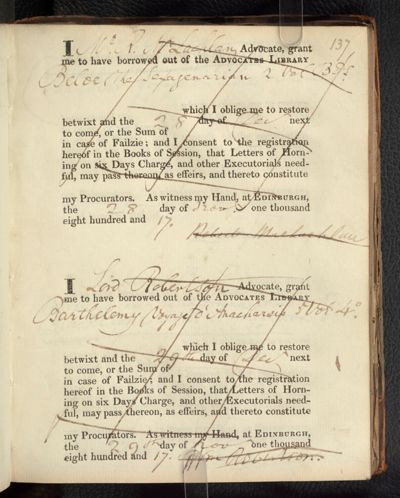 137
I Mr. R. McLachlan, Advocate, grant
me to have borrowed out of the ADVOCATES LIBRARY
Beloe the Sexagenarian 2 vol
which I oblige me to restore
betwixt and the 28 day of next
to come, or the Sum of
in case of Failzie; and I consent to the registration
hereof in the Books of Session, that Letters of Horn-
ing on six Days Charge, and other Executorials need-
ful, may pass thereon, as effeirs, and thereto constitute
my Procurators. As witness my Hand, at EDINBURGH,
the 28 day of Novr. one thousand
eight hundred and 17.
I Lord Robertson Advocate, grant
me to have borrowed out of the ADVOCATES LIBRARY
Barthelemy Voyage d'Anacharsis 4o.
which I oblige me to restore
betwixt and the 29th day of next
to come, or the Sum of
in case of Failzie; and I consent to the registration
hereof in the Books of Session, that Letters of Horn-
ing on six Days Charge, and other Executorials need-
ful, may pass thereon, as effeirs, and thereto constitute
my Procurators. As witness my Hand, at EDINBURGH,
the 29th day of Novr one thousand
eight hundred and 17. Robertson.